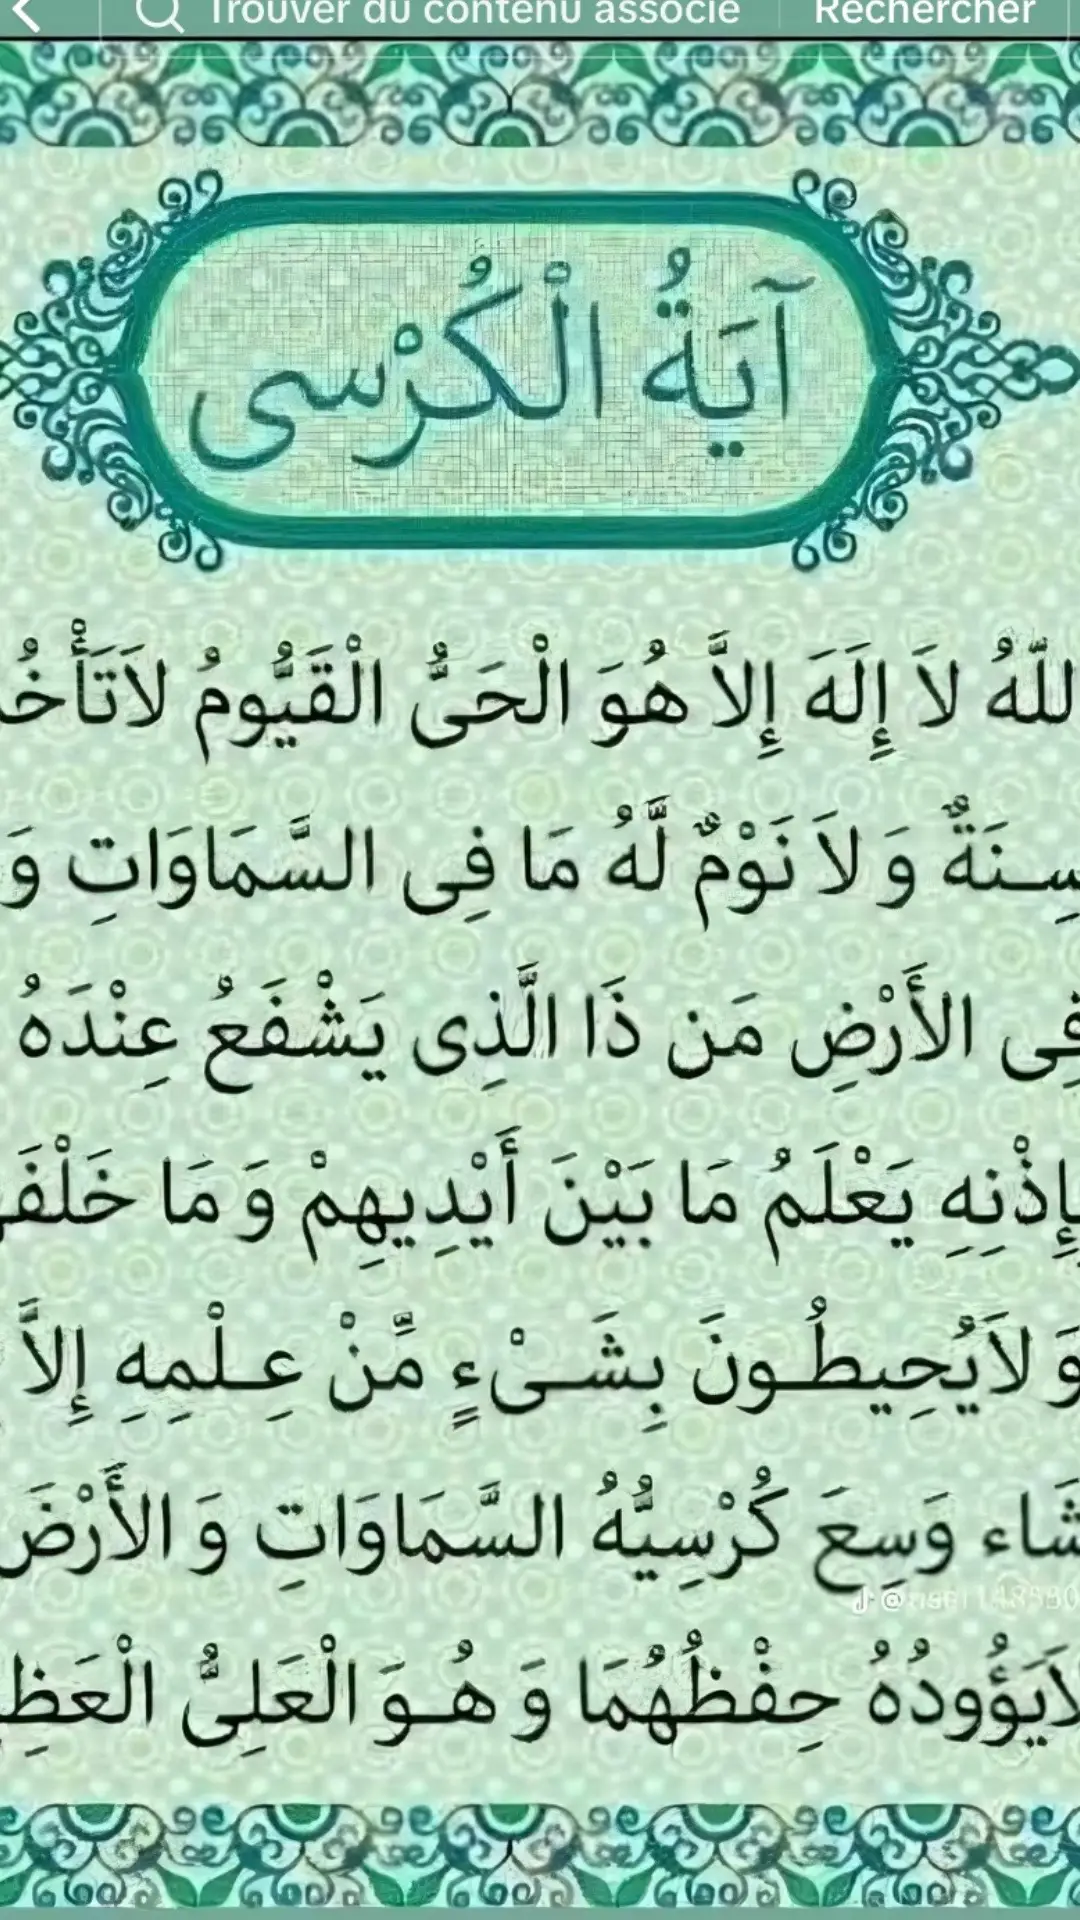 Trouver du contenu associé Rechercher
آيَةُ الْكُرْسى
للّٰهُ لاَ إِلَهَ إِلاَّ هُوَ الْحَىُّ الْقَيُّومُ لاَتَأْخُ
سِـنَةٌ وَ لاَ نَوْمٌ لَّهُ مَا فِى السَّمَاوَاتِ وَ
فِى الأَرْضِ مَن ذَا الَّذِى يَشْفَعُ عِنْدَهُ
بِإِذْنِهِ يَعْلَمُ مَا بَيْنَ أَيْدِيهِمْ وَ مَا خَلْفَ
وَ لاَيُحِيطُـونَ بِشَـىْءٍ مِّنْ عِـلْمِهِ إِلاَّ
شَاء وَسِعَ كُرْسِيُّهُ السَّمَاوَاتِ وَ الأَرْضَ
لاَيَؤُودُهُ حِفْظُهُمَا وَ هُـوَ الْعَلِىُّ الْعَظِ